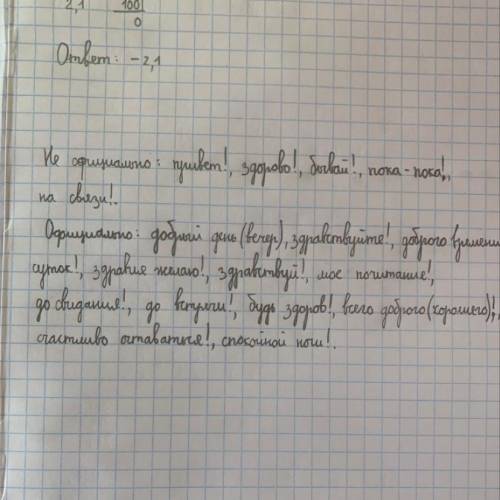 2,1 100
0
Ответ: -2,1
Не официально: привет!, здорово!, бывай!, пока-пока!,
на связи!.
Официально: добрый день(вечер), здравствуйте!, доброго времени
суток!, здравие желаю!, здравствуй!, мое почитание!,
до свидания!, до встречи!, будь здоров!, всего доброго(хорошего)!,
счастливо оставаться!, спокойной ночи!.